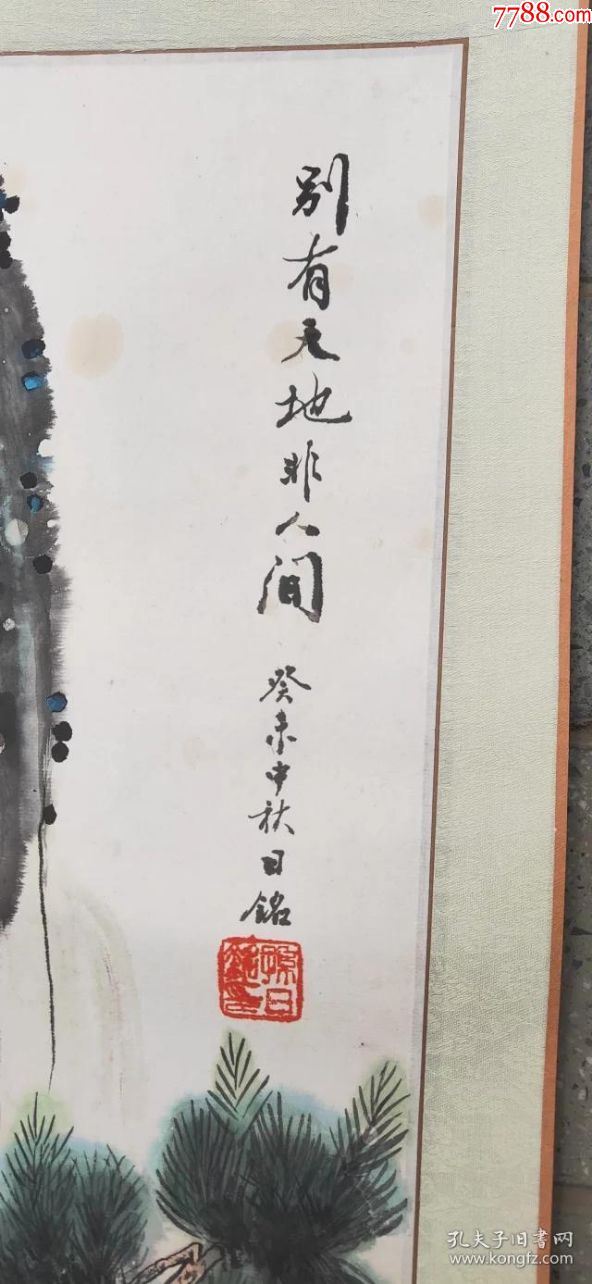 7788.com
别有天地非人间
癸未中秋日铭
孙日铭印
孔夫子旧书网
www.kongfz.com